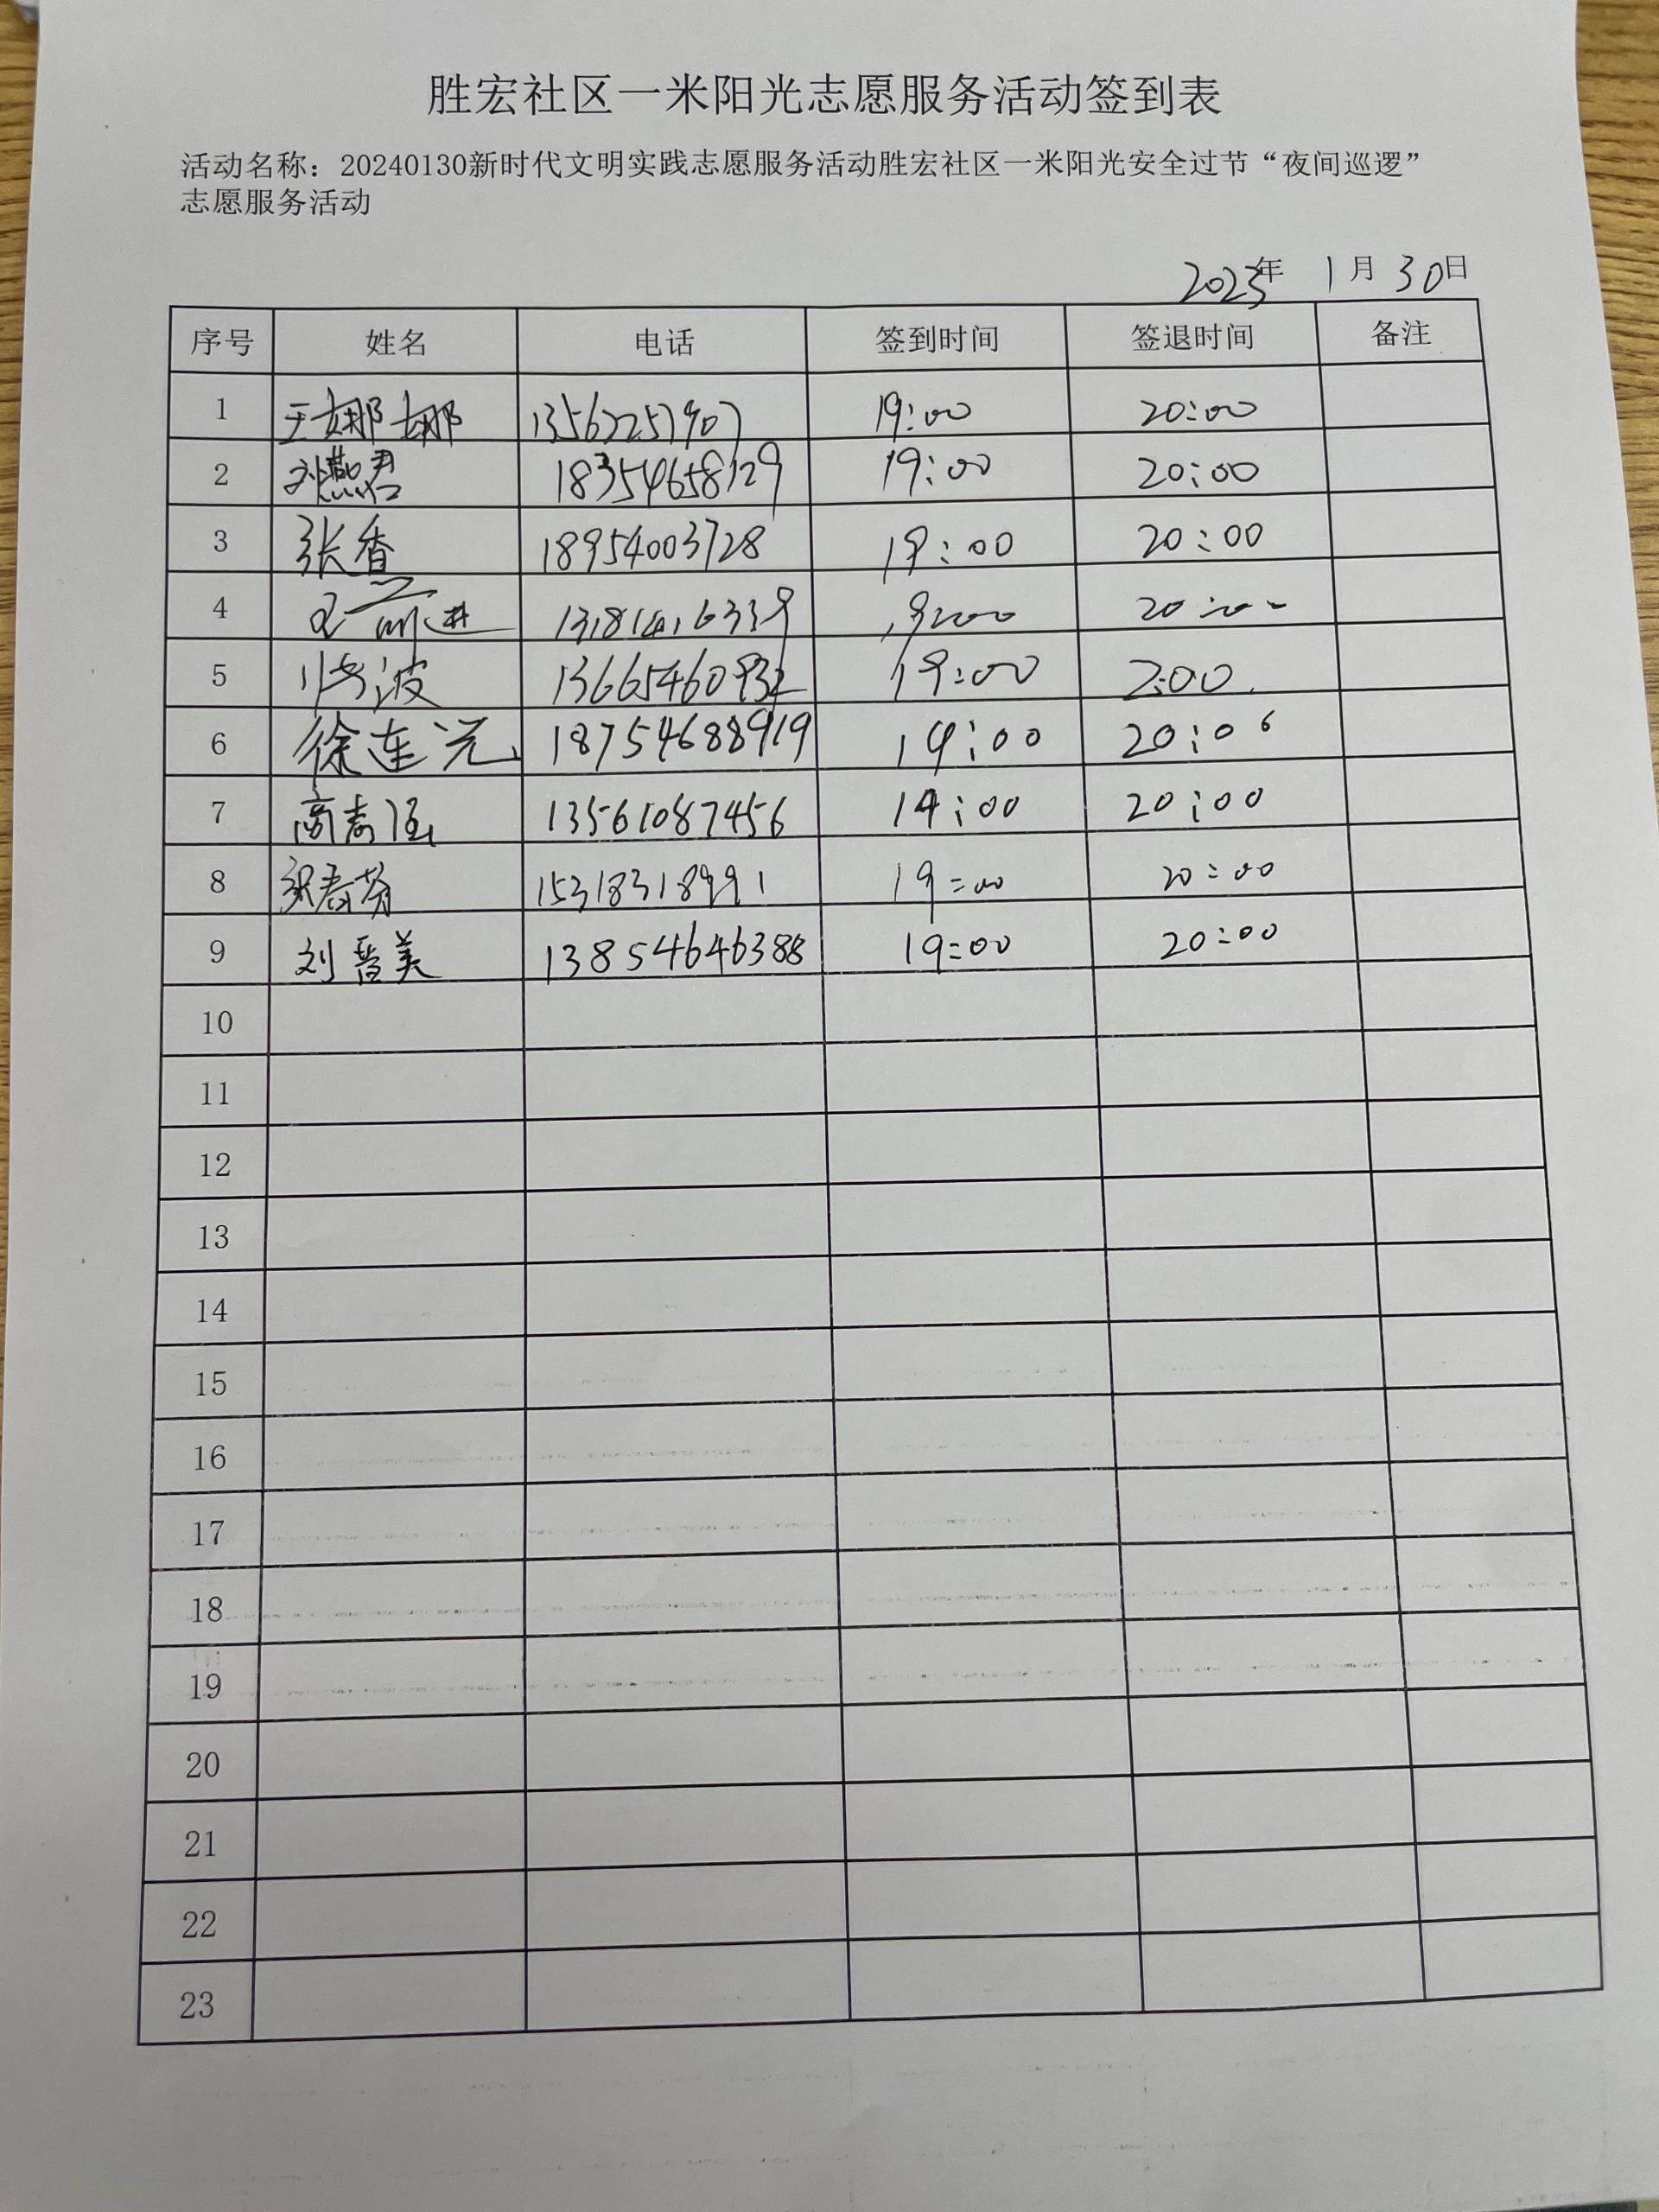 胜宏社区一米阳光志愿服务活动签到表
活动名称：20240130新时代文明实践志愿服务活动胜宏社区一米阳光安全过节“夜间巡逻”
志愿服务活动
2023年 1月30日
序号 姓名 电话 签到时间 签退时间 备注
1 王娜娜 13562257907 19:00 20:00
2 刘燕君 18354658129 19:00 20:00
3 张香 18954003728 19:00 20:00
4 20:00
5 波 13665460932 19:00 2:00
6 徐连元 18754688919 19:00 20:00
7 高志强 13561087456 19:00 20:00
8 15318318991 19:00 20:00
9 刘晋美 13854646388 19:00 20:00
10
11
12
13
14
15
16
17
18
19
20
21
22
23